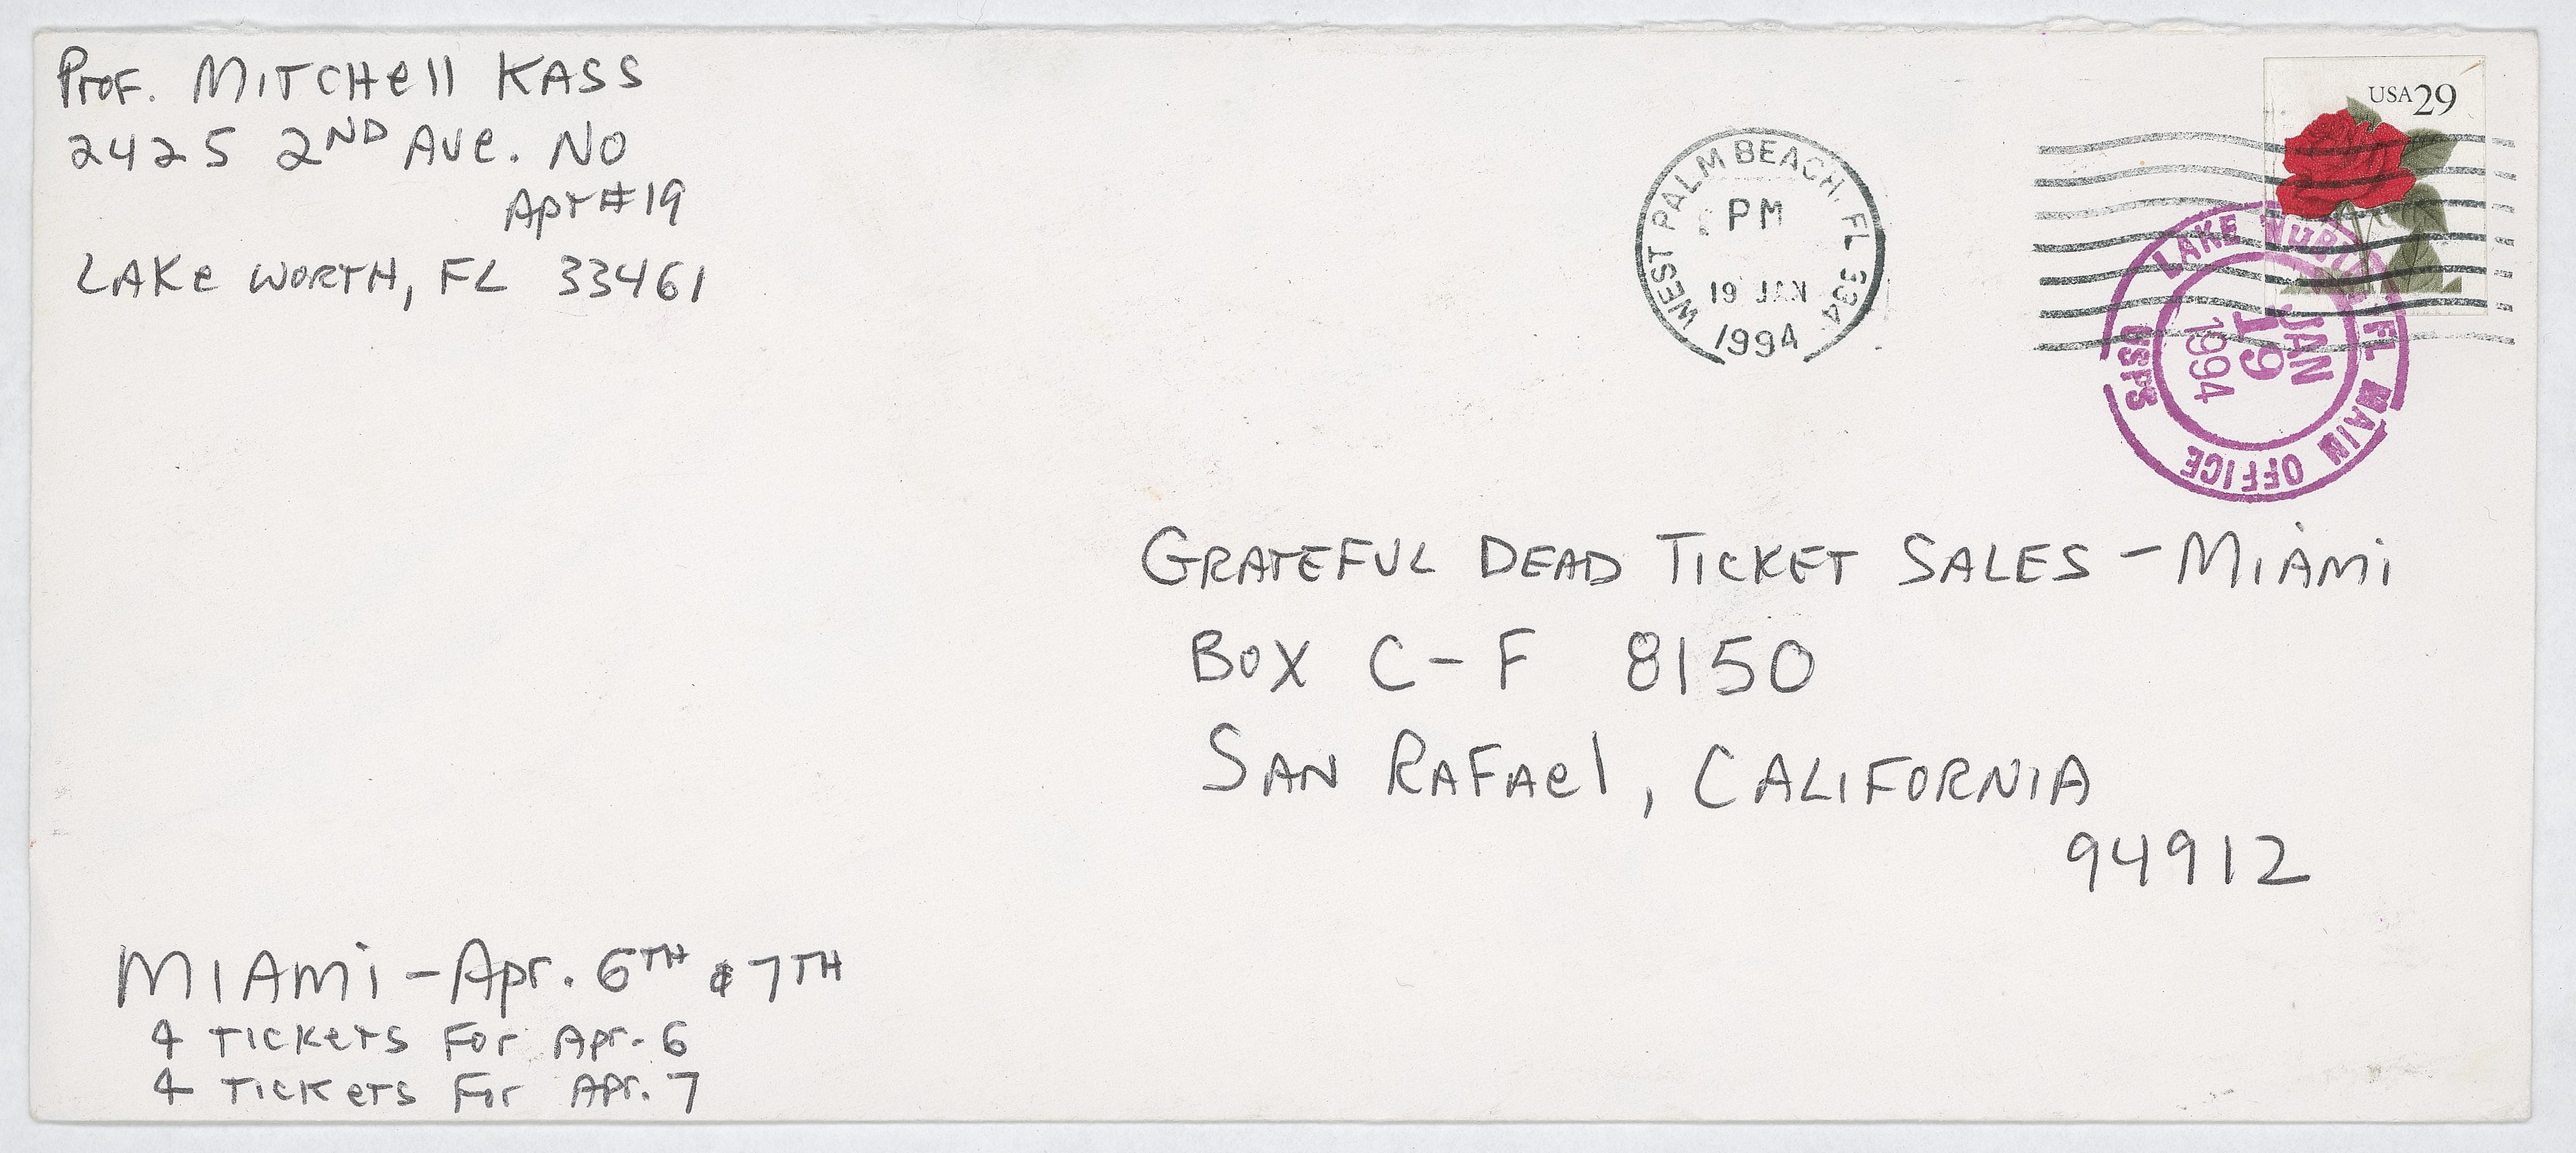 Prof. Mitchell Kass
2425 2ND Ave. No
Apt #19
Lake Worth, FL 33461
USA 29
WEST PALM BEACH, FL 334
PM
19 JAN
1994
LAKE WORTH FL MAIN OFFICE
JAN
19
1994
USPS
Grateful Dead Ticket Sales - Miami
Box C-F 8150
San Rafael, California
94912
Miami - Apr. 6TH & 7TH
4 tickets for Apr. 6
4 tickets for Apr. 7